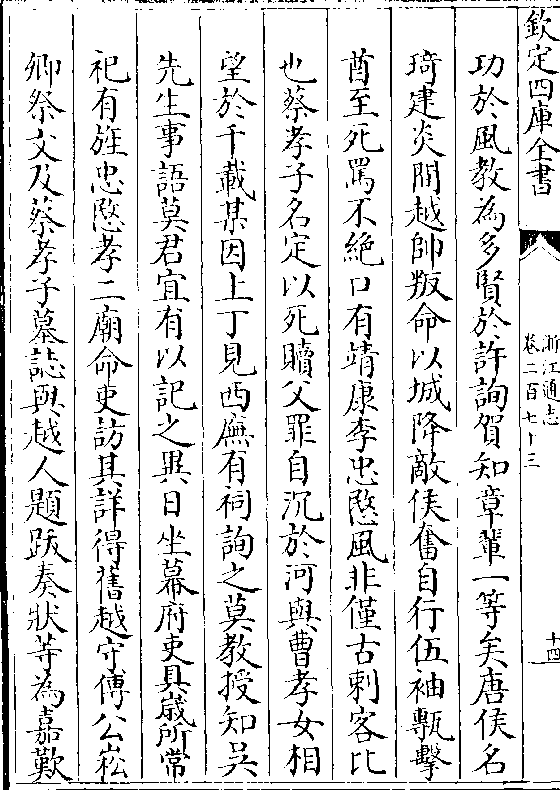 欽定四庫全書
浙江通志
卷二百七十三
十四
功於風教為多賢於許詢賀知章輩一等矣唐侯名
琦建炎間越帥叛命以城降敵侯奮自行伍袖甎擊
酋至死罵不絶口有靖康李忠愍風非僅古刺客比
也蔡孝子名定以死贖父罪自沉於河與曹孝女相
望於千載某因上丁見西廡有祠詢之莫教授知吴
先生事語莫君宜有以記之異日坐幕府吏具歳所常
祀有旌忠愍孝二廟命吏訪其詳得舊越守傅公崧
卿祭文及蔡孝子墓誌與越人題跋奏狀等為嘉歎